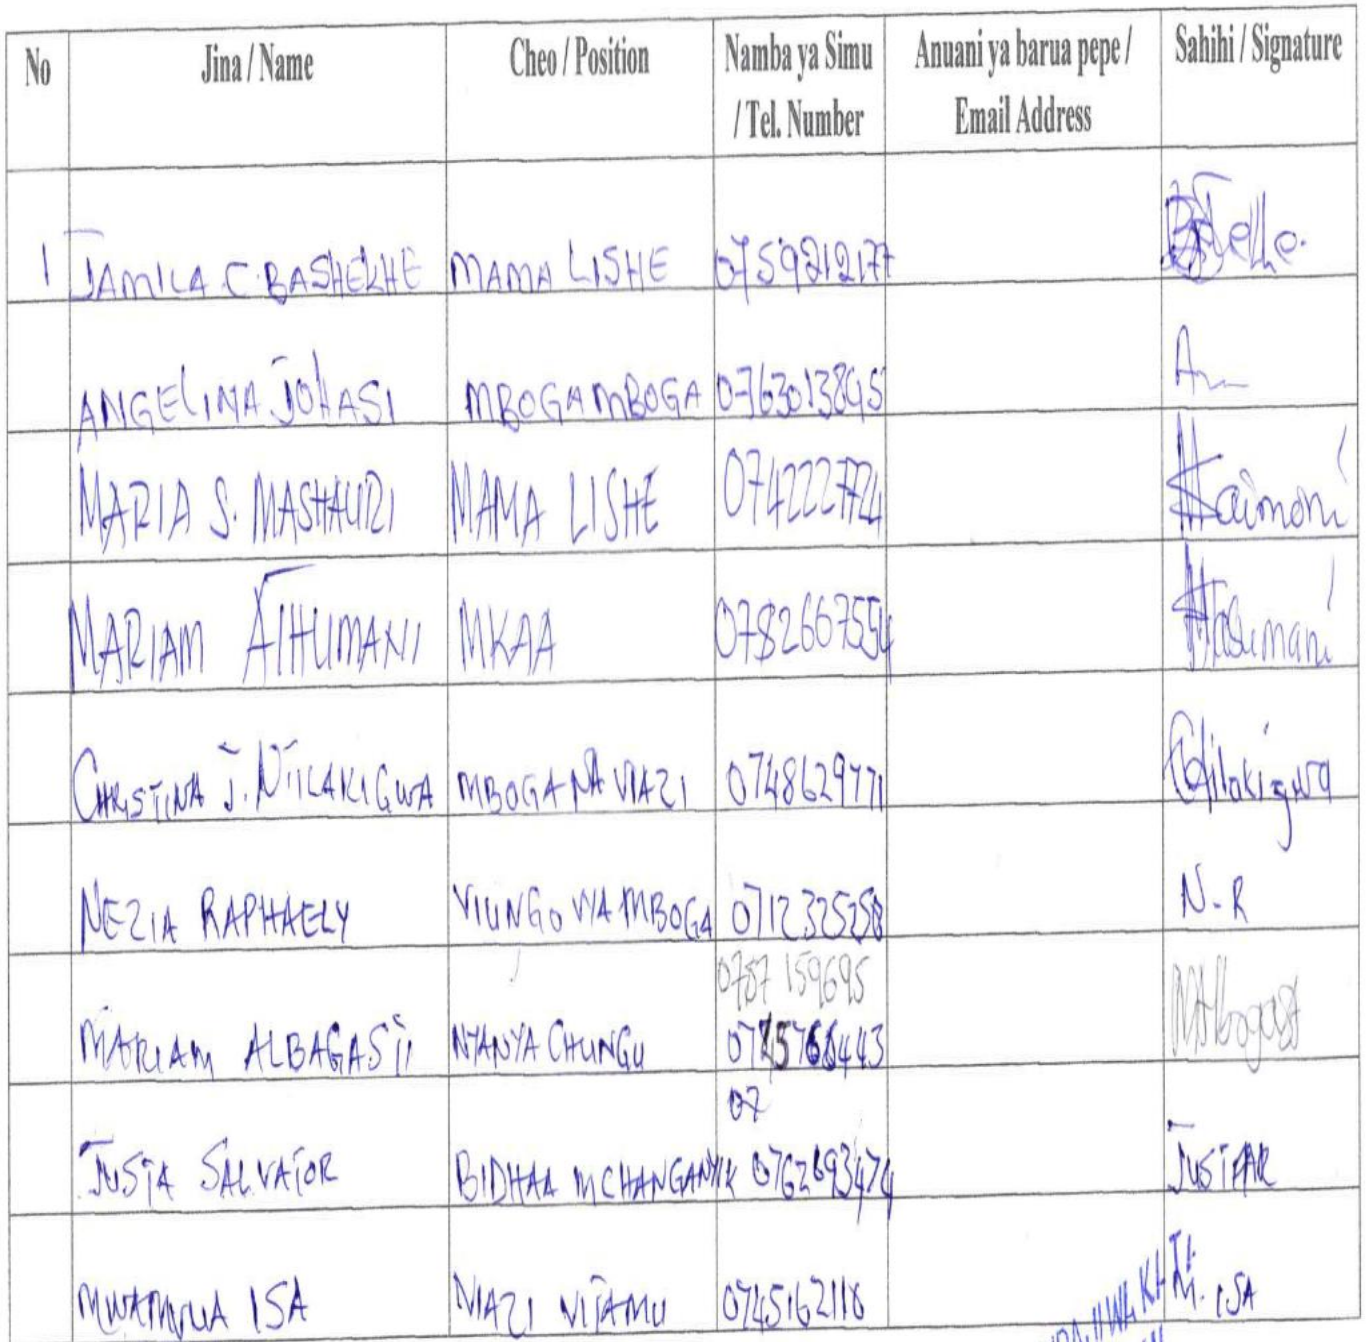 No Jina / Name Cheo / Position Namba ya Simu / Tel. Number Anuani ya barua pepe / Email Address Sahihi / Signature
1 JAMILA C. BASHEKHE MAMA LISHE 0759212177
ANGELINA JOHASI MBOGAMBOGA 0763013845 A
MARIA S. MASHAURI MAMA LISHE 0742227724 Saimoni
MARIAM ATHUMANI MKAA 0782667554
CHRISTINA J. NTILAKIGWA MBOGA NA VIAZI 0748629771
NEZIA RAPHAELY VIUNGO VYA MBOGA 0712325258 N-R
0787 159695
MARIAM ALBAGASTI NYANYA CHUNGU 0745766443
07
JUSTA SALVATOR BIDHAA MCHANGANYIK 0762693474 JUSTAR
ISA VIAZI VITAMU 0745162118 M. ISA